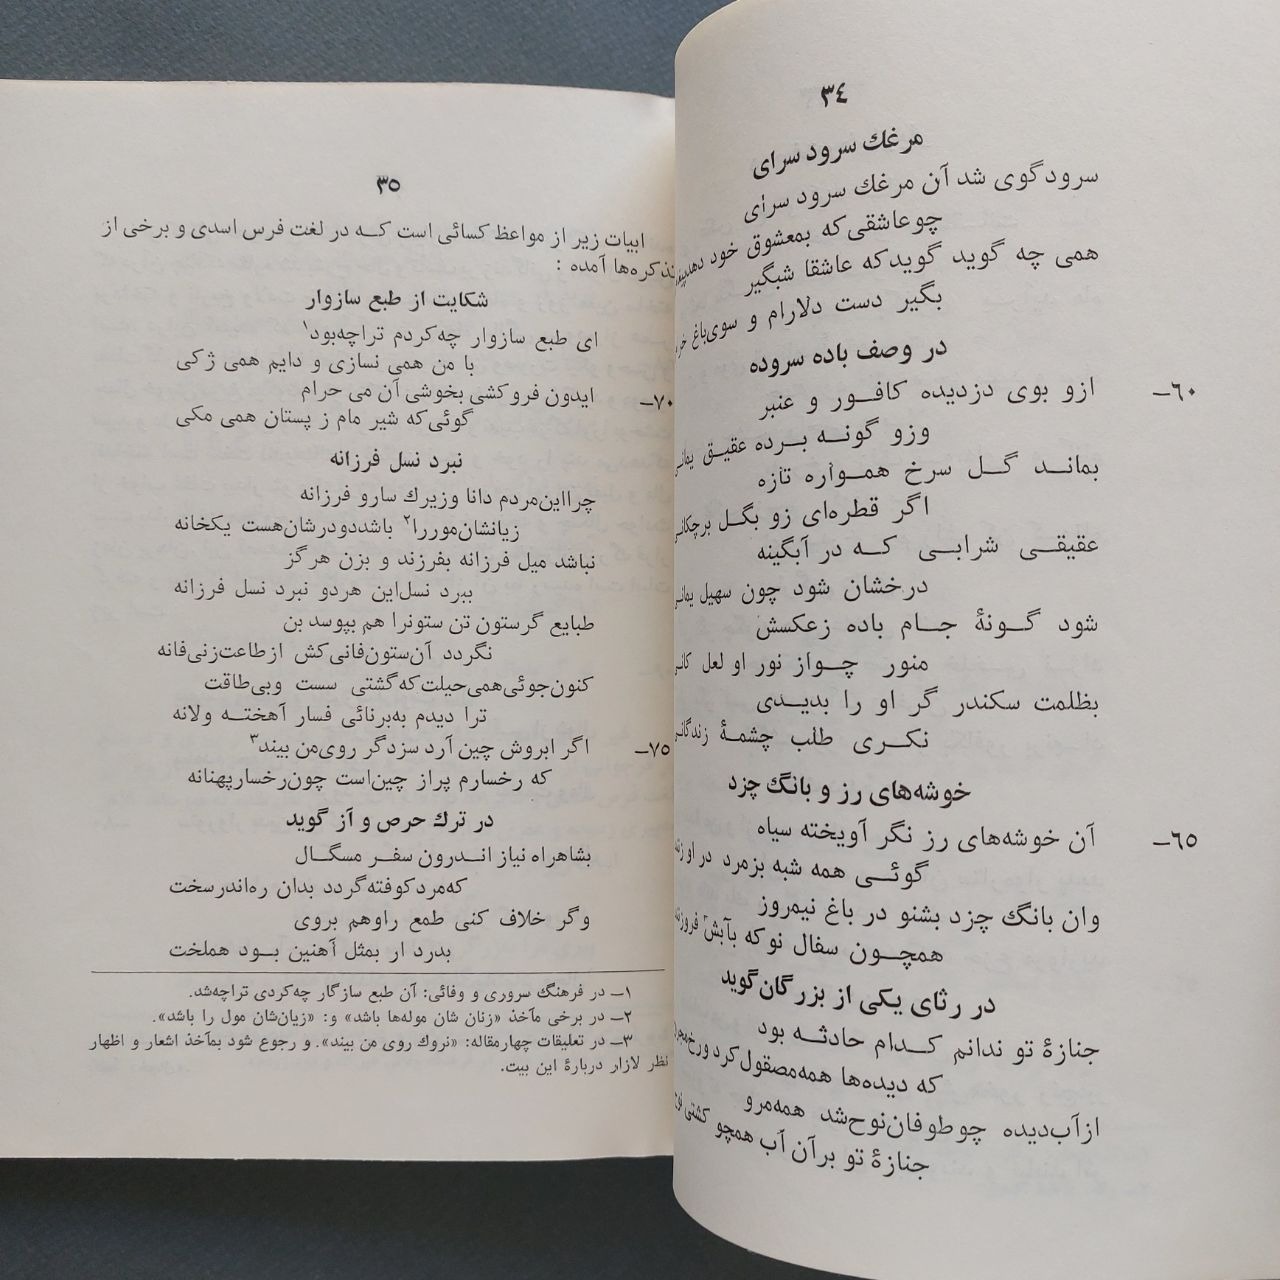 ٣٤
مرغك سرود سرای
سرودگوی شد آن مرغك سرود سرای
چوعاشقی‌که بمعشوق خود دهد
همی چه گوید گویدکه عاشقا شبگیر
بگیر دست دلارام و سوی‌باغ
در وصف باده سروده
٦٠ـ ازو بوی دزدیده کافـور و عنبر
وزو گونـه بـرده عقیق یمانی
بمانـد گـل سرخ همـواره تازه
اگر قطره‌ای زو بگـل برچکانی
عقیقـی شرابـی کـه در آبگینه
درخشان شود چون سهیل یمانی
شود گـونۀ جـام باده زعکسش
منور چـواز نور او لعل کانی
بظلمت سکندر گر او را بدیـدی
نکـری طلب چشمۀ زندگانی
خوشه‌های رز و بانگ چزد
٦٥ـ آن خوشه‌های رز نگر آویخته سیاه
گوئـی همه شبه بزمرد در او
وان بانگ چزد بشنو در باغ نیمروز
همچـون سفال نوکه بآبش٢
در رثای یکی از بزرگان‌گوید
جنازۀ تو ندانم کـدام حادثـه بود
که دیده‌ها همه‌مصقول‌کرد ورخ
ازآب‌دیده چوطوفان‌نوح‌شد همه‌مرو
جنازۀ تو برآن آب همچو کشتی نوح
٣٥
ابیات زیر از مواعظ کسائی است کـه در لغت فرس اسدی و برخی از
تذکره‌ها آمده :
شکایت از طبع سازوار
ای طبع سازوار چه‌کردم تراچه‌بود١
با من همی نسازی و دایم همی ژکی
٧٠ـ ایدون فروکشی بخوشی آن می حرام
گوئی‌که شیر مام ز پستان همی مکی
نبرد نسل فرزانه
چرااین‌مردم دانا وزیرك سارو فرزانه
زیانشان‌موررا٢ باشددودرشان‌هست یکخانه
نباشد میل فرزانه بفرزند و بزن هرگز
ببرد نسل‌این هردو نبرد نسل فرزانه
طبایع گرستون تن ستونرا هم بپوسد بن
نگردد آن‌ستون‌فانی‌کش ازطاعت‌زنی‌فانه
کنون‌جوئی‌همی‌حیلت‌که‌گشتی سست وبی‌طاقت
ترا دیدم به‌برنائی فسار آهختـه ولانه
٧٥ـ اگر ابروش چین آرد سزدگر روی‌من بیند٣
که رخسارم پراز چین‌است چون‌رخسارپهنانه
در ترك حرص و آز گوید
بشاهراه نیاز انـدرون سفـر مسگـال
که‌مردکوفته‌گردد بدان ره‌اندرسخت
وگر خلاف کنی طمع راوهم بروی
بدرد ار بمثل آهنین بـود هملخت
١ـ در فرهنگ سروری و وفائی: آن طبع سازگار چه‌کردی تراچه‌شد.
٢ـ در برخی مآخذ «زنان شان موله‌ها باشد» و: «زیان‌شان مول را باشد».
٣ـ در تعلیقات چهارمقاله: «نروك روی من بیند». و رجوع شود بمآخذ اشعار و اظهار
نظر لازار دربارۀ این بیت.